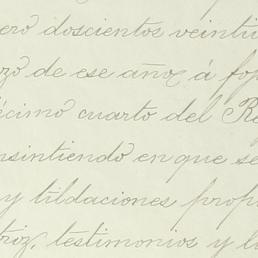 ero doscientos veintiu
rzo de ese año, á fo
écimo cuarto del Re
nsintiendo en que se
y tildaciones prop
triz, testimonios y l